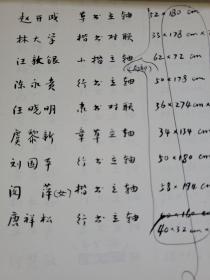 赵开成 草书立轴 52×180 cm
林大学 楷书对联 35×178 cm×
汪敏眼 小楷立轴 62×72
陈永贵 行书立轴 50×173
汪晓明 隶书对联 36×274 cm×
虞黎新 章草立轴 34×134 cm
刘国平 行书立轴 50×180 cm
闵萍(女) 楷书立轴 58×194 cm
唐祥松 行书立轴
40×32 cm×